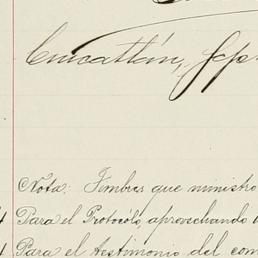 Cuicatlán,
Nota: Timbres que ministro
Para el Protócolo, aprovechando
Para el testimonio del com